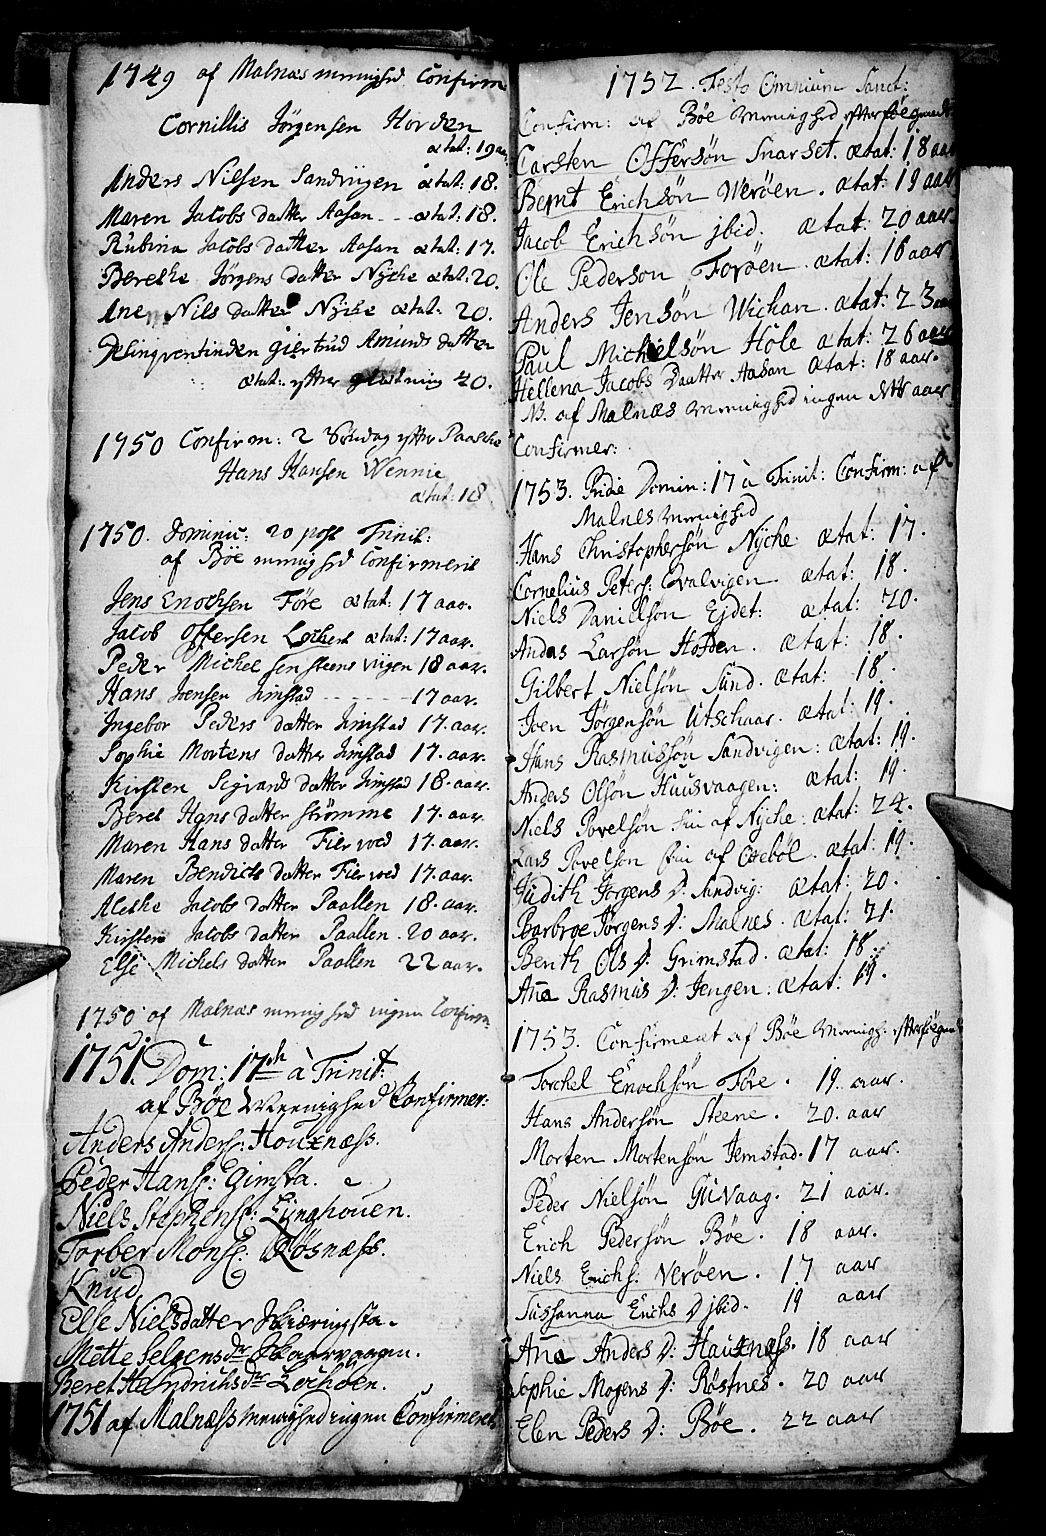 1749 af Malnæs menighed Confirm
Cornillis Jørgensen Horden
ætat: 19 aar
Anders Nilsen Sandvigen ætat: 18.
Maren Jacobs datter Aasan - - ætat: 18.
Rubina Jacobs datter Aasan ætat: 17.
Berethe Jørgens datter Nyche ætat: 20.
Ane Nils datter Nyche ætat: 20.
Delinqventinden Giertrud Amunds datter
ætat: efter 40.
1750 Confirm: 2 Søndag efter Paasche
Hans Hansen Wennie
ætat: 18
1750. Dominic: 20 post Trinit:
af Bøe menighed Confirmerit
Jens Enochsen Føre ætat: 17 aar.
Jacob Offersen Lochert ætat: 17 aar.
Peder Michelsen Steensviigen 18 aar.
Hans Joensen Jimstad - - - - - - 17 aar.
Ingebor Peders datter Jimstad 17. aar.
Sophie Mortens datter Jimstad 17. aar.
Kirsten Sigvards datter Jimstad 18. aar.
Beret Hans datter Strømme 17. aar.
Maren Hans datter Fiervoed 17. aar.
Maren Bendicts datter Fiervoed 17. aar.
Alethe Jacobs datter Paallen 18. aar.
Kirsten Jacobs datter Paallen. 20 aar.
Else Michels datter Paallen 22 aar.
1750 af Malnæs menighed ingen Confirm
1751. Dom: 17 à Trinit:
af Bøe Meenighed Confirmer:
Anders Anders: Houxnæss.
Peder Hans: Gimsta.
Niels Stephens: Lynghouen.
Torber Mons: Røsnæss.
Knud
Else Nielsdatter Skiæringsta.
Mette Selgensdr Skaarvaagen.
Beret Hendrichsdr Lochøen.
1751 af Malnæss menighed ingen Confirmeret
1752. Festo Omnium Sanct:
Confirm: af Bøe Menighed efterføgende
Carsten Offersøn Snarset. ætat: 18 aar
Bernt Erichsøn Werøen. ætat: 19 aar
Jacob Erichsøn jbid. ætat: 20 aar.
Ole Pederson Forøen. ætat: 16 aar
Anders Jensøn Wichan. ætat: 23 aar
Paul Michelsøn Hole ætat: 26 aar
Hellena Jacobs Daatter Aasan ætat: 18 aar.
NB. af Malnæs Menighed ingen dette aar
Confirmer:
1753. Pridie Domin: 17 à Trinit: Confirm: af
Malnes Menighed
Hans Christophersøn Nyche ætat: 17.
Cornelius Peters: Qvalvigen ætat: 18.
Niels Danielsøn Ejdet: ætat: 20.
Anders Larsøn Hofden. ætat: 18.
Gilbert Nielsøn Sund. ætat: 18.
Joen Jørgensøn Utschaar. ætat: 19.
Hans Rasmussøn Sandvigen: ætat: 19.
Anders Olsøn Huusvaagen: ætat: 19.
Niels Povelsøn Fin af Nyche: ætat: 24.
Lars Povelson Fin af Qvebøl. ætat: 19.
Judith Jørgens D: Sandvig: ætat: 20.
Barbroe Jørgens D: Malnes. ætat: 21.
Berith Ols D: Grimstad. ætat: 18.
Aña Rasmus D: Jengen: ætat: 19.
1753. Confirment af Bøe Menigh: efterføgende
Torchel Enochsøn Føre. 19. aar.
Hans Andersøn Steene. 20. aar
Morten Mortensøn Jemstad. 17 aar.
Peder Nielsøn Guvaag. 21 aar.
Erich Pedersøn Bøe. 18 aar.
Niels Erichs: Verøen. 17 aar
Sussanna Erichs D jbid. 19 aar
Aña Anders D: Hauxnæss. 18 aar
Sophie Mogens D: Røstnes. 20 aar
Elen Peders D: Bøe. 22 aar